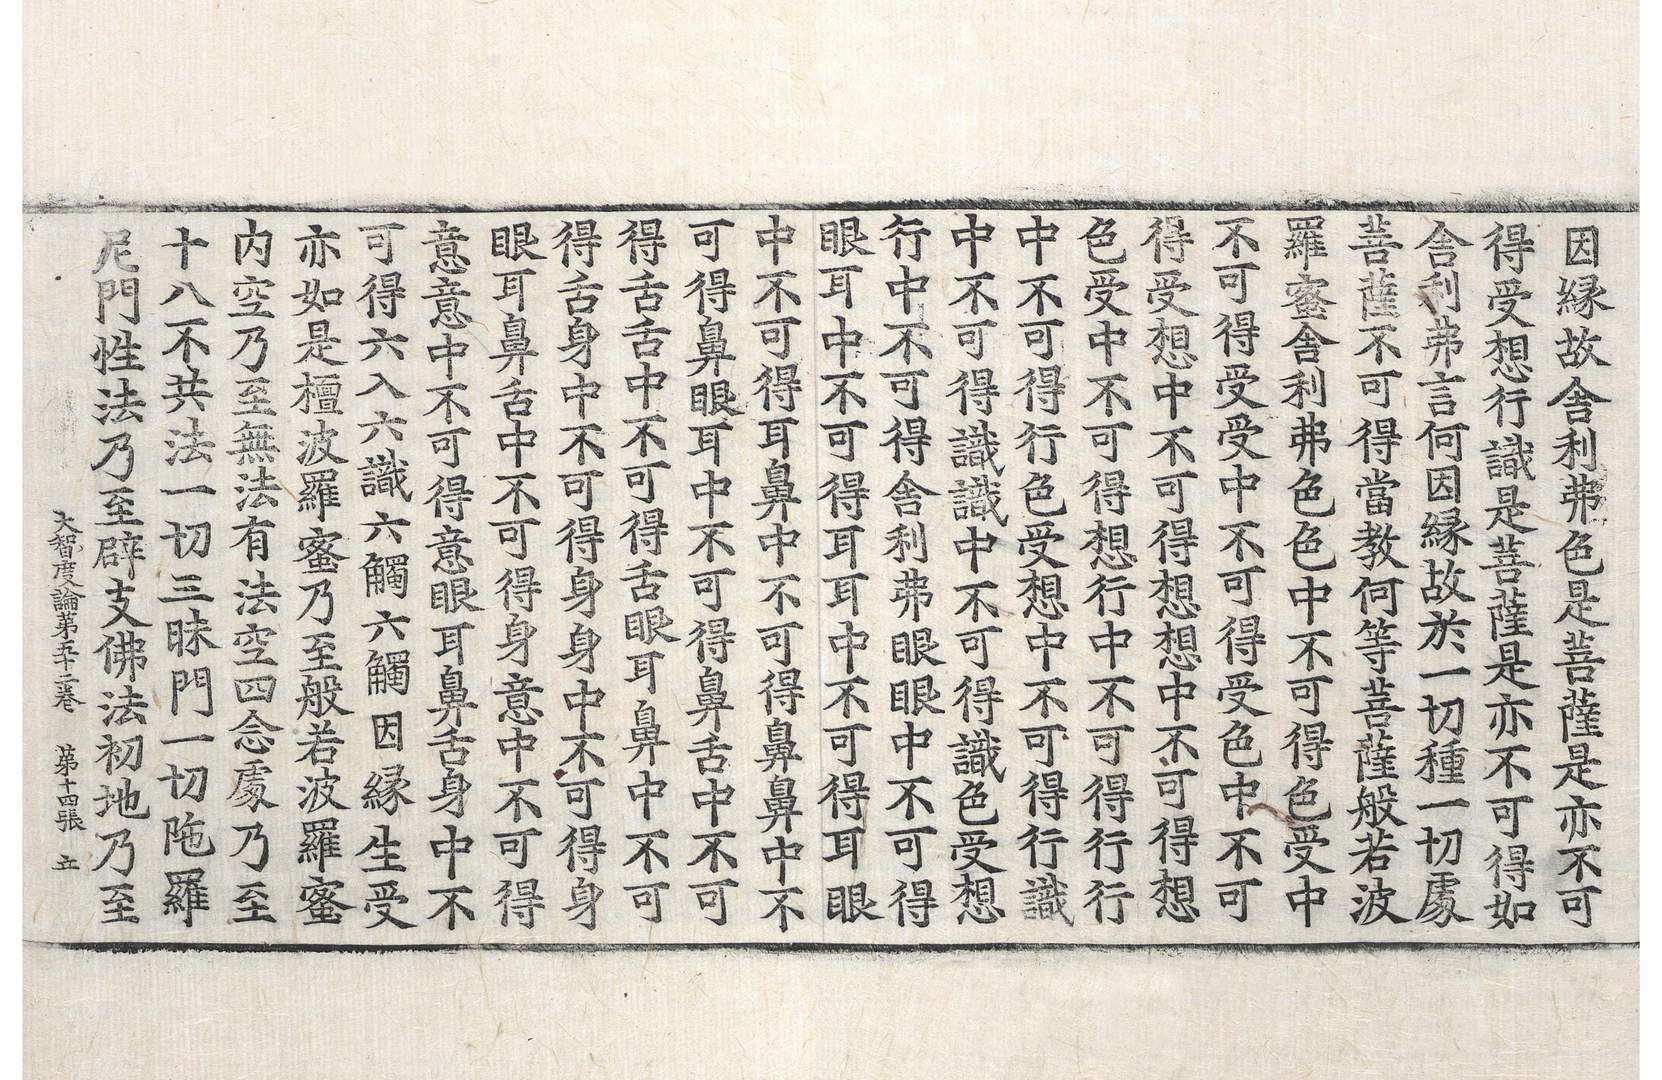 因緣故舍利弗色是菩薩是亦不可
得受想行識是菩薩是亦不可得如
舍利弗言何因緣故於一切種一切處
菩薩不可得當教何等菩薩般若波
羅蜜舍利弗色色中不可得色受中
不可得受受中不可得受色中不可
得受想中不可得想想中不可得想
色受中不可得想行中不可得行行
中不可得行色受想中不可得行識
中不可得識識中不可得識色受想
行中不可得舍利弗眼眼中不可得
眼耳中不可得耳耳中不可得耳眼
中不可得耳鼻中不可得鼻鼻中不
可得鼻眼耳中不可得鼻舌中不可
得舌舌中不可得舌眼耳鼻中不可
得舌身中不可得身身中不可得身
眼耳鼻舌中不可得身意中不可得
意意中不可得意眼耳鼻舌身中不
可得六入六識六觸六觸因緣生受
亦如是檀波羅蜜乃至般若波羅蜜
內空乃至無法有法空四念處乃至
十八不共法一切三昧門一切陁羅
尼門性法乃至辟支佛法初地乃至
大智度論第五十二卷 第十四張 立